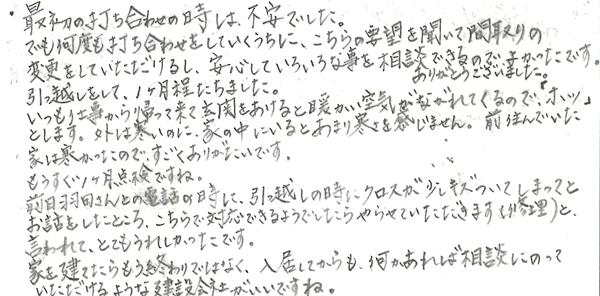 ・最初の打ち合わせの時は、不安でした。
でも何度も打ち合わせをしていくうちに、こちらの要望を聞いて間取りの
変更をしていただけるし、安心していろいろな事を相談できるので、よかったです。
ありがとうございました。
引っ越しをして、1ヶ月程たちました。
いつも仕事から帰って来て玄関をあけると暖かい空気がながれてくるので、「ホッ」
とします。外は寒いのに、家の中にいるとあまり寒さを感じません。前住んでいた
家は寒かったので、すごくありがたいです。
もうすぐ1ヶ月点検ですね。
前日羽田さんとの電話の時に、引っ越しの時にクロスが少しキズついてしまってと
お話をしたところ、こちらで対応できるようでしたらやらせていただきます(修理)と、
言われて、とてもうれしかったです。
家を建てたらもう終わりではなく、入居してからも、何かあれば相談にのって
いただけるような建設会社がいいですね。